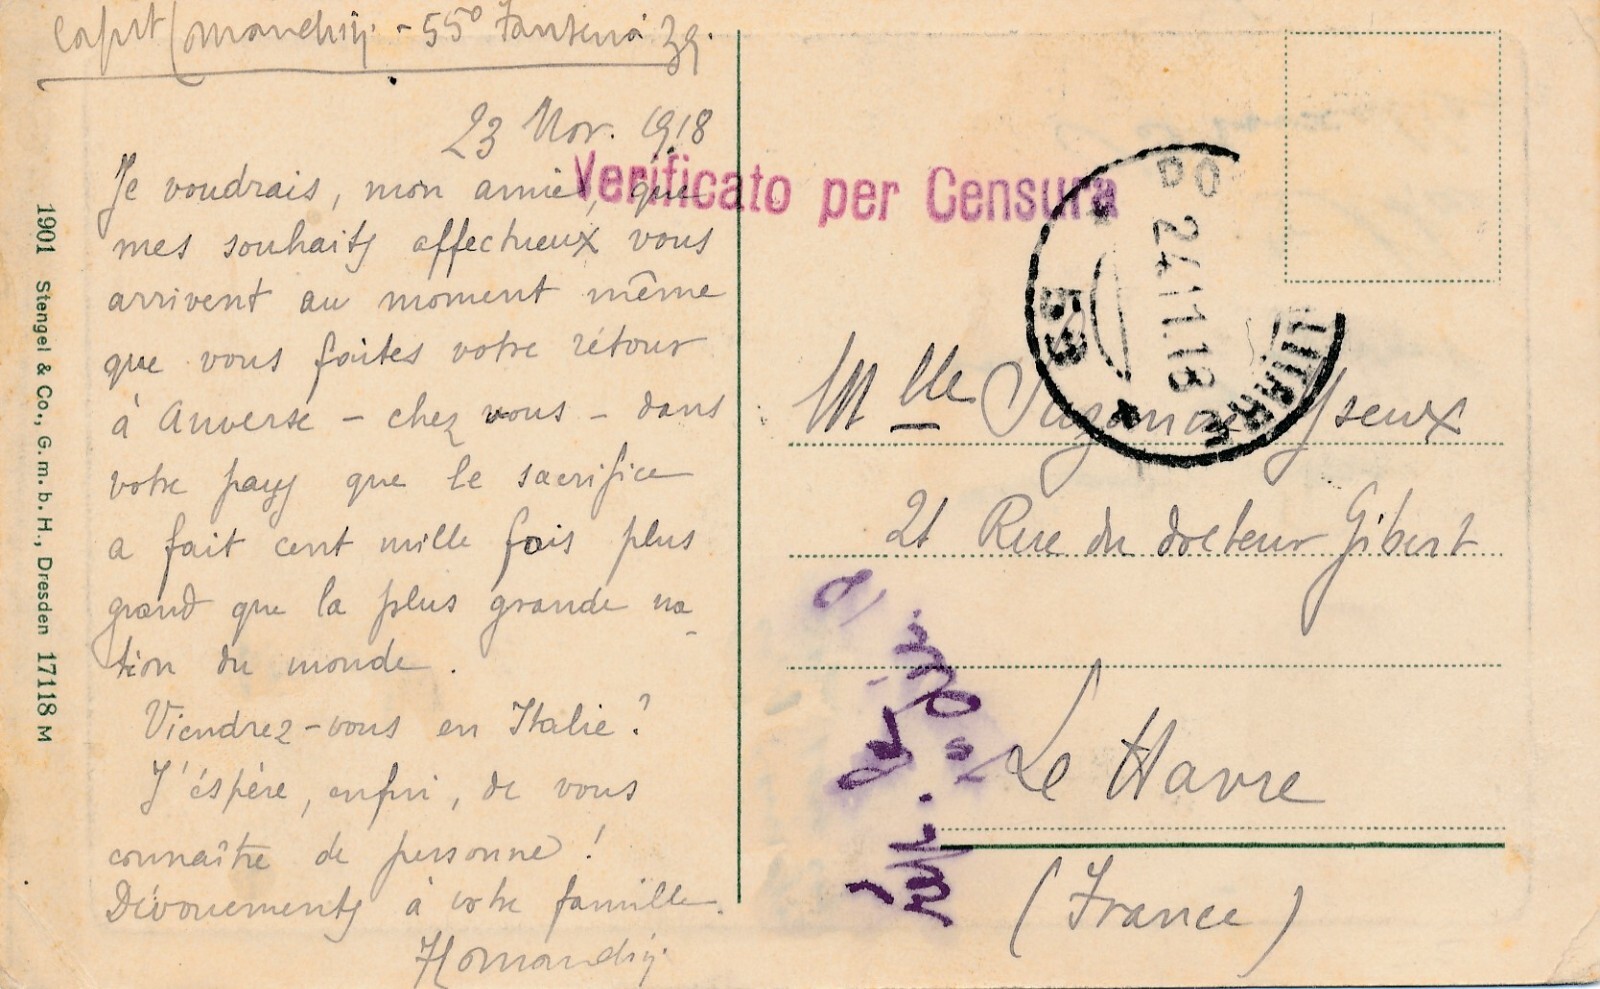 55º Fanteria 39.
23 Nov. 1918
Je voudrais, mon amie, que
mes souhaits affectueux vous
arrivent au moment même
que vous faites votre rétour
à Anverse – chez vous – dans
votre pays que le sacrifice
a fait cent mille fois plus
grand que la plus grande na-
tion du monde.
Viendrez-vous en Italie?
J'éspère, enfin, de vous
connaître de personne!
Dévouements à votre famille.
1901 Stengel & Co., G. m. b. H., Dresden 17118 M
Verificato per Censura
PO
24.11.18
53
Mlle Yseux
21 Rue du docteur Gibert
Le Havre
(France)